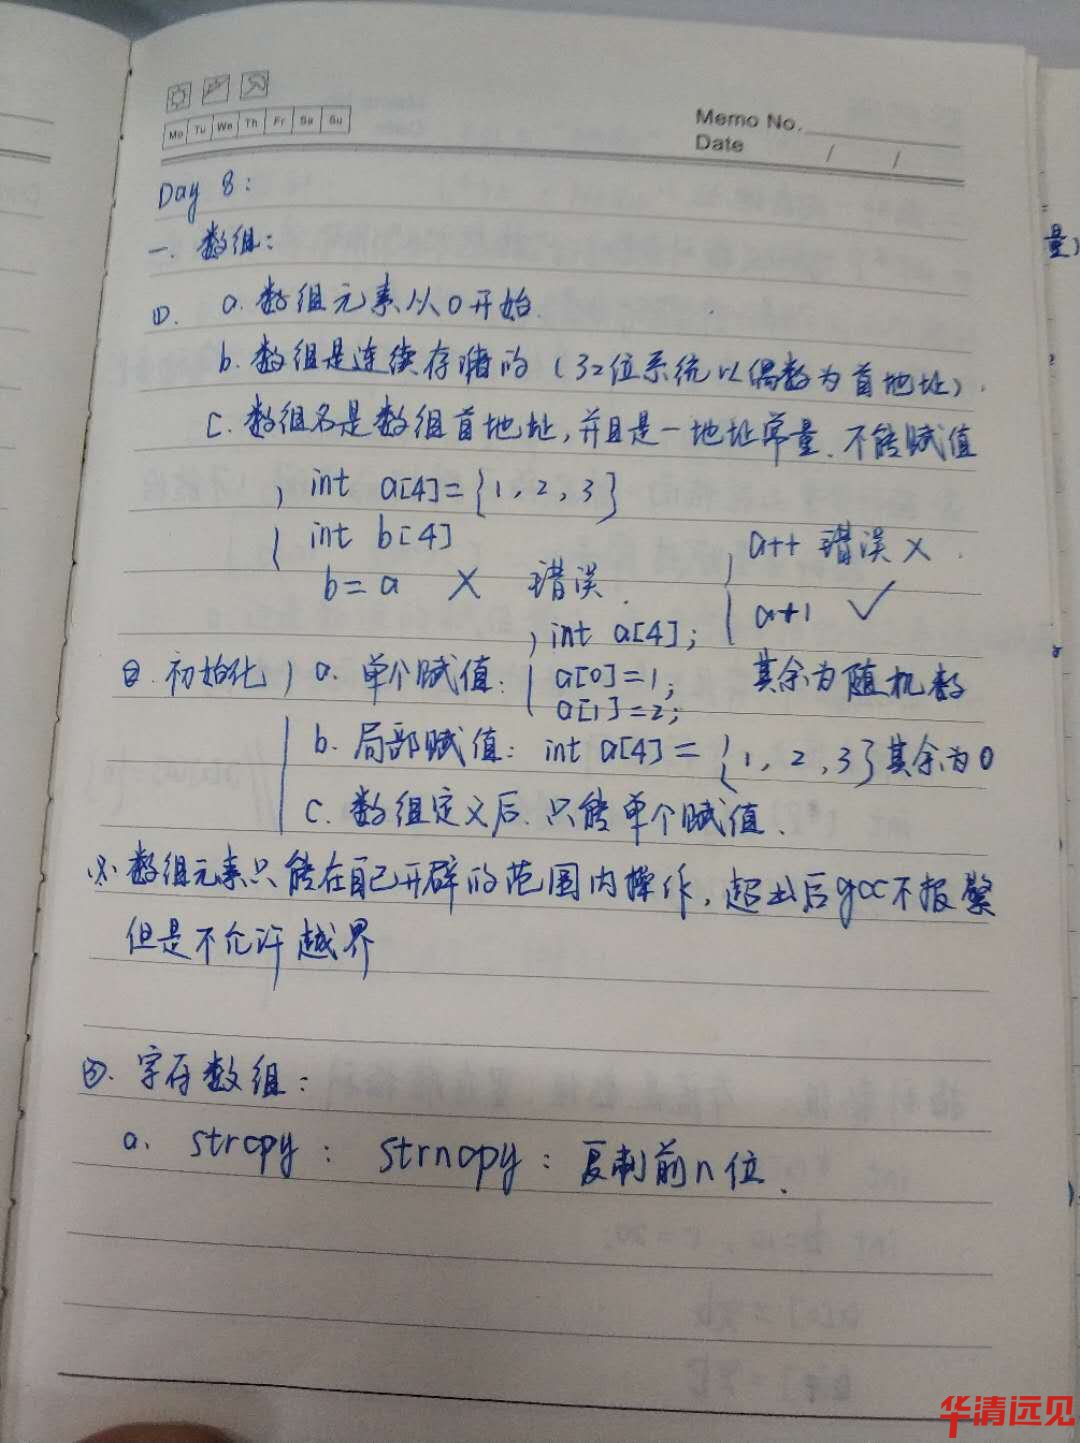 Mo Tu We Th Fr Sa Su
Memo No.
Date / /
Day 8:
一. 数组:
①. a. 数组元素从0开始.
b. 数组是连续存储的 (32位系统以偶数为首地址).
C. 数组名是数组首地址, 并且是一地址常量. 不能赋值
int a[4]={1, 2, 3}
int b[4]
b=a × 错误.
a++ 错误 ×.
a+1 ✓
②. 初始化 a. 单个赋值: int a[4];
a[0]=1; 其余为随机数
a[1]=2;
b. 局部赋值: int a[4] = {1, 2, 3} 其余为0
C. 数组定义后. 只能单个赋值.
※ 数组元素只能在自己开辟的范围内操作, 超出后gcc不报警
但是不允许越界
字符数组:
a. strcpy: strncpy: 复制前n位.
量)
华清远见